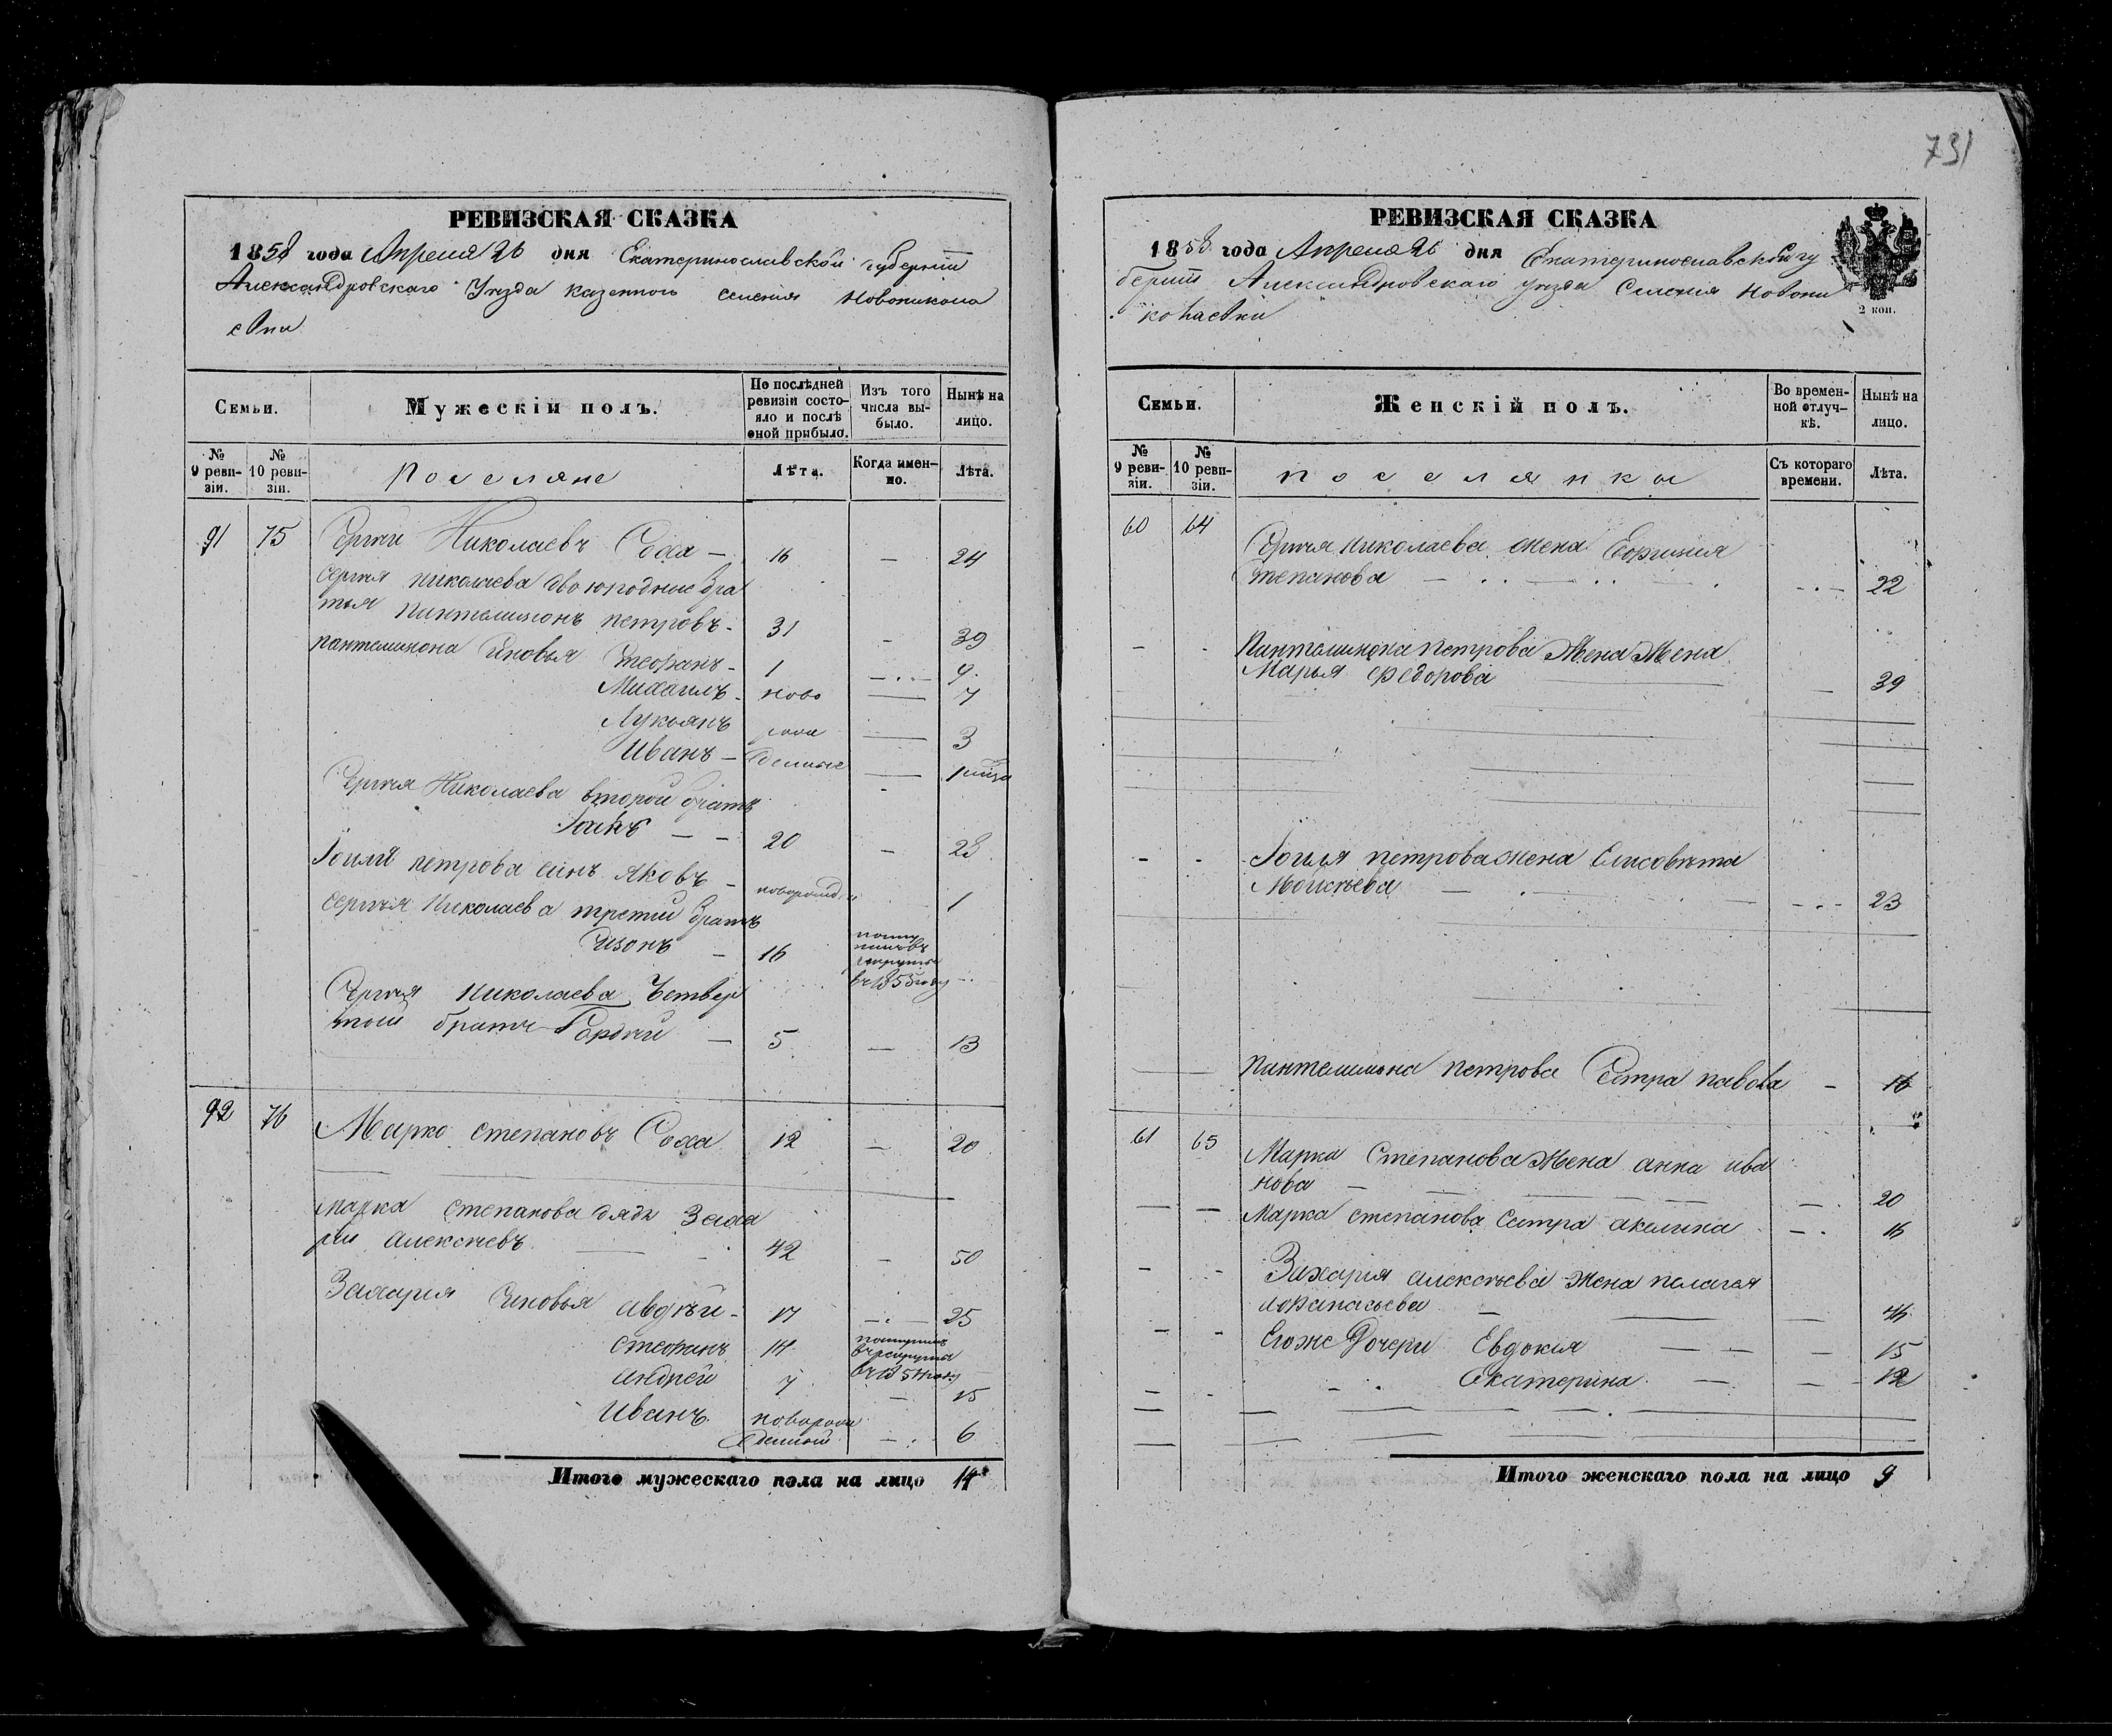 731
РЕВИЗСКАЯ СКАЗКА
1858 года Апреля 26 дня Екатеринославской губернiи
Александровскаго Уѣзда казеннаго селенiя Новоникола
евки
Семьи.
Мужескiй полъ.
По послѣдней ревизiи состо-
яло и послѣ
оной прибыло.
Изъ того
числа вы-
было.
Нынѣ на
лицо.
№ 9 реви-
зiи.
№ 10 реви-
зiи.
Поселяне
Лѣта.
Когда имен-
но.
Лѣта.
91 75 Сергѣй Николаевъ Соха — 16 — 24
Сергѣя Николаева двоюродные бра
тья Пантелимонъ Петровъ - 31 - 39
Пантелимона сыновья Стефанъ - 1 — 9
Михаилъ - ново — 7
Лукьянъ рож — 3
Иванъ — денные — 1
Сергѣя Николаева второй братъ
20 — 28
Петрова сынъ Яковъ — новорожд. 1
Сергѣя Николаева третiй братъ
Сизонъ — 16 посту
пилъ въ
рекруты
въ 1853 году
Сергѣя Николаева Четвер
тый братъ Гордѣй — 5 — 13
92 76 Марко Степановъ Соха 12 — 20
Марка Степанова дядя Заха
рiй Алексѣевъ 42 — 50
Захарiя сыновья Авдѣй - 17 — 25
Стефанъ 14 поступилъ
въ рекруты
въ 1854 году
Андрей 7 — 15
Иванъ новорож
денный — 6
Итого мужескаго пола на лицо 14
РЕВИЗСКАЯ СКАЗКА
1858 года Апреля 26 дня Екатеринославской гу
бернiи Александровскаго уѣзда Селенiя Новони
колаевки
2 коп.
Семьи.
Женскiй полъ.
Во времен-
ной отлуч-
кѣ.
Нынѣ на
лицо.
№ 9 реви-
зiи.
№ 10 реви-
зiи.
Поселянки
Съ котораго
времени.
Лѣта.
60 64 Сергѣя Николаева жена Ефросинiя
Степанова — 22
- - Пантелимона Петрова Жена Жена
Марья Федорова — 39
- - Петрова жена Елисовѣта
Мойсѣева — 23
Пантелимона Петрова Сестра — 16
61 65 Марка Степанова Жена Анна Ива
нова — 20
— — Марка Степанова Сестра Акелина — 16
- - Захарiя Алексѣева Жена Пелагея
Афанасьева — 46
- - Егоже Дочери Евдокiя — 15
- - Екатерина — 12
Итого женскаго пола на лицо 9